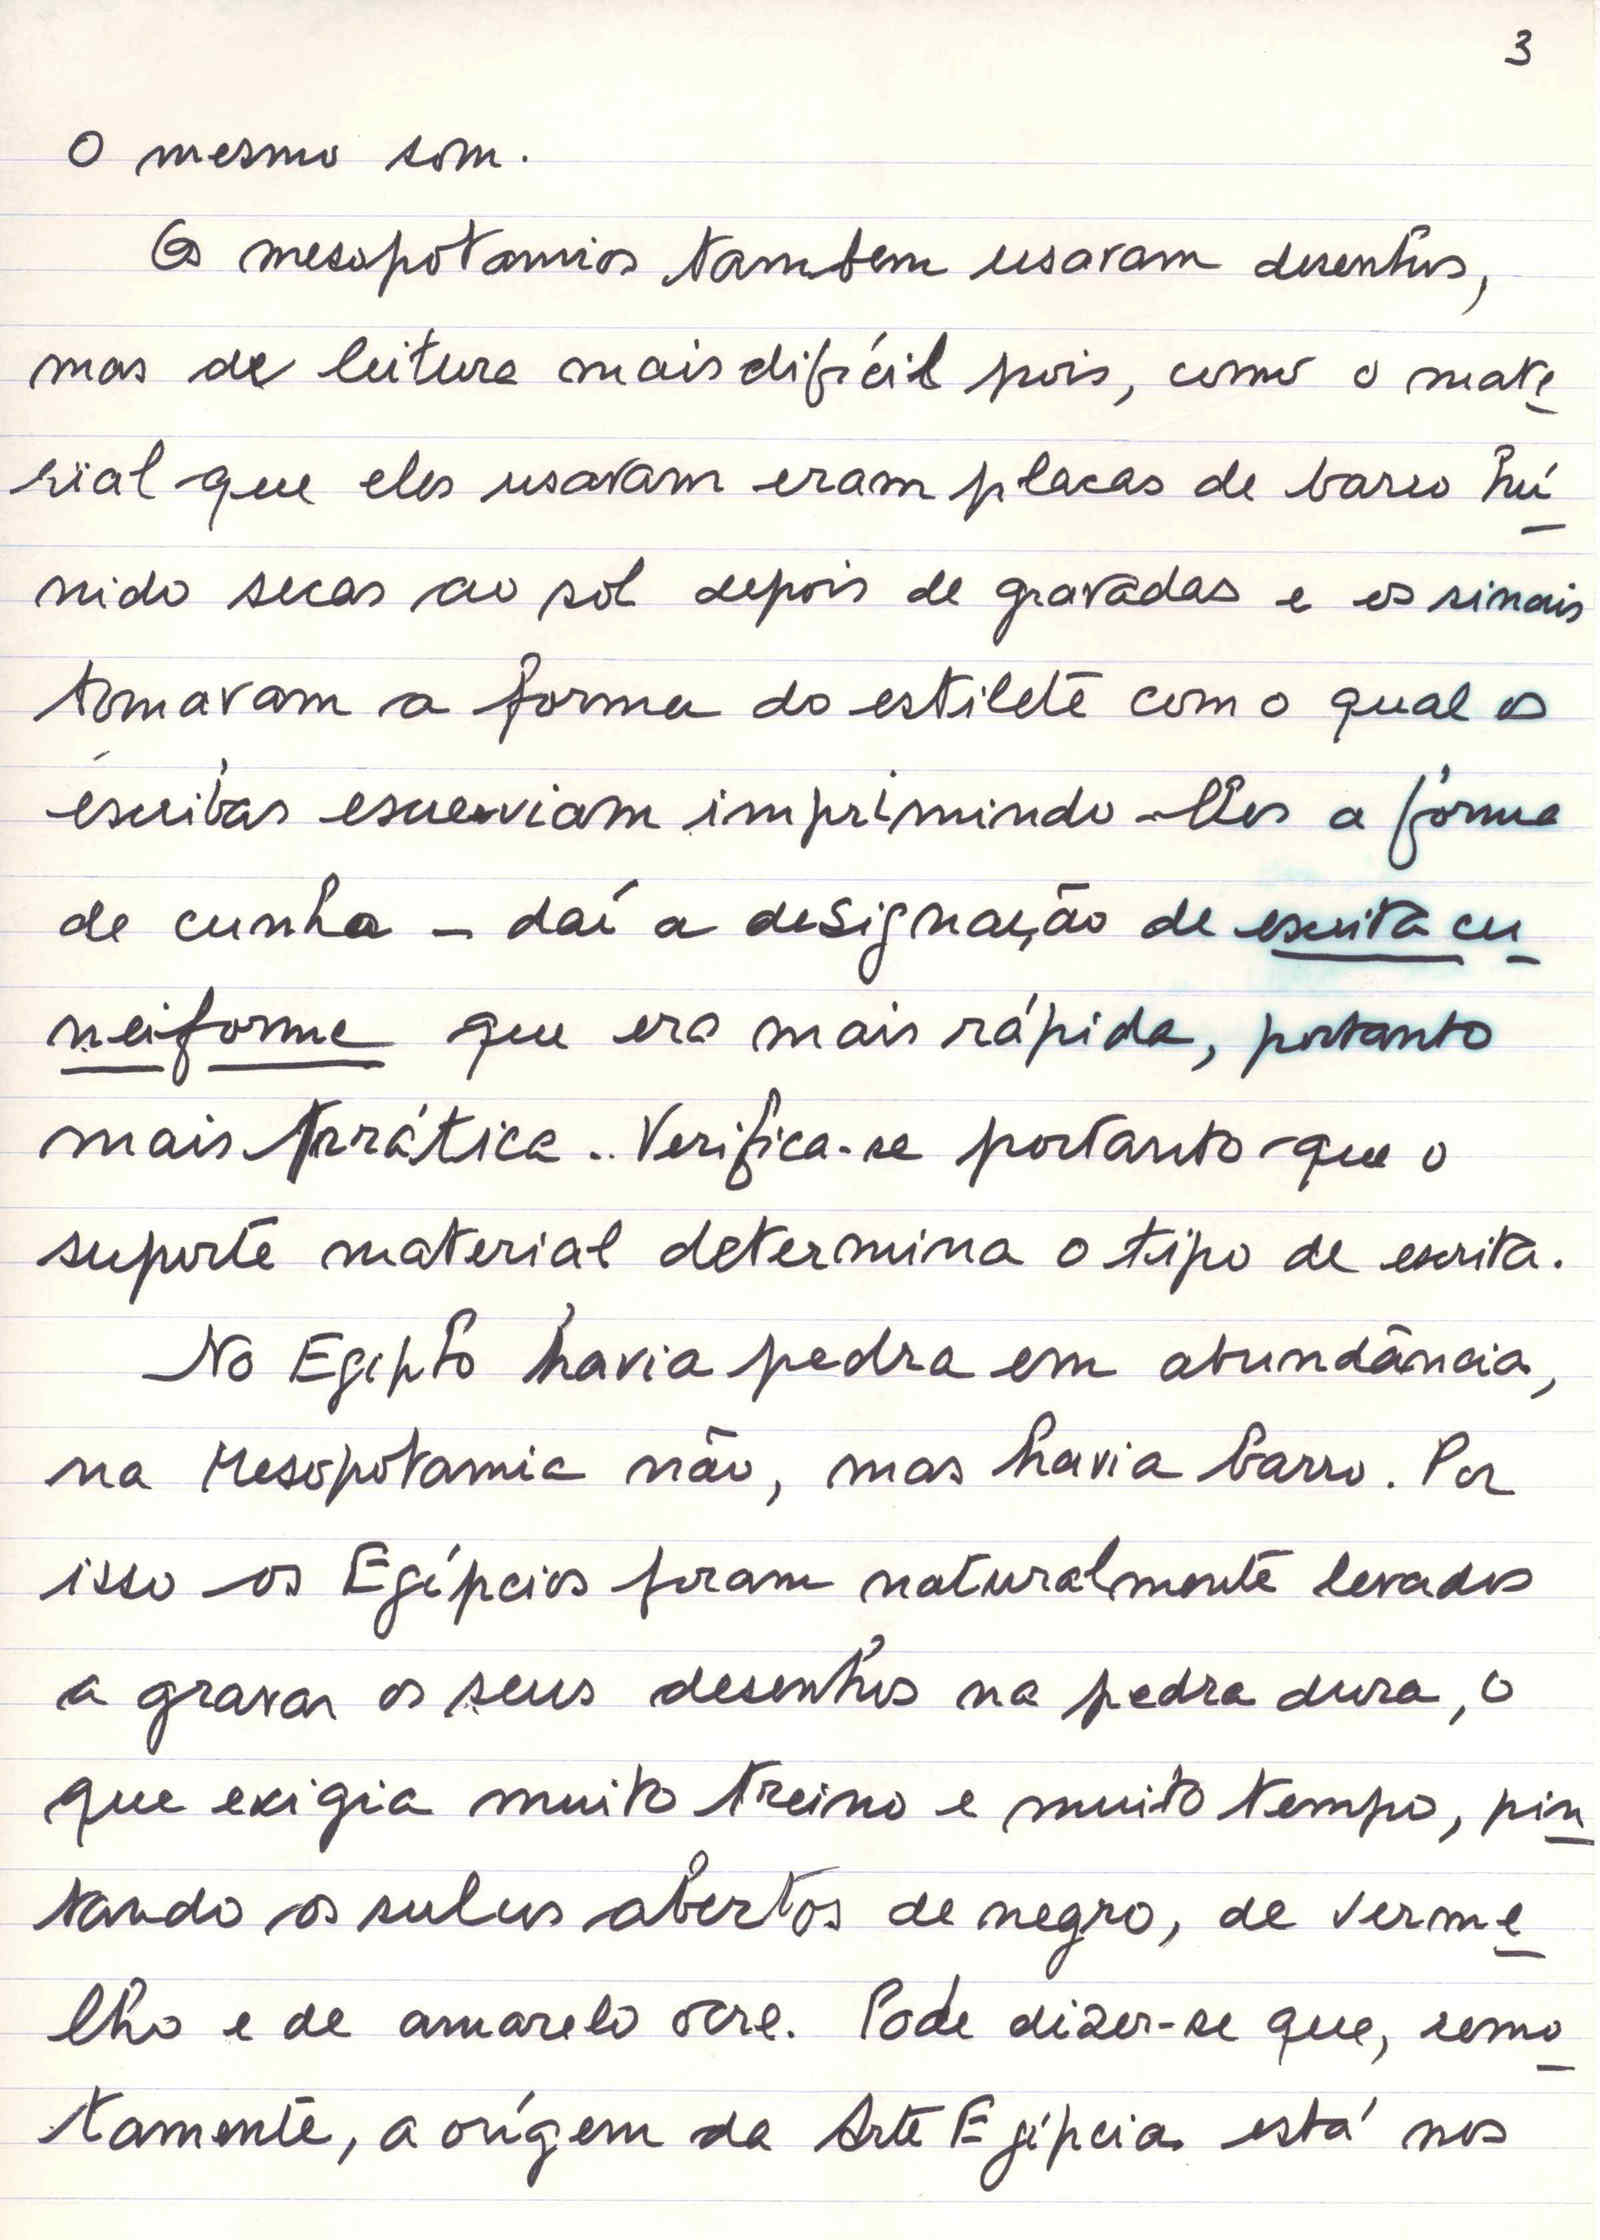 3
o mesmo som.
Os mesopotamios tambem usavam desenhos,
mas de leitura mais difícil pois, como o mate
rial que eles usavam eram placas de barro hú
mido secas ao sol depois de gravadas e os sinais
tomavam a forma do estilete com o qual os
escribas escreviam imprimindo-lhes a forma
de cunha - daí a designação de escrita cu
neiforme que era mais rápida, portanto
mais prática.. Verifica-se portanto que o
suporte material determina o tipo de escrita.
No Egipto havia pedra em abundância,
na Mesopotamia não, mas havia barro. Por
isso os Egípcios foram naturalmente levados
a gravar os seus desenhos na pedra dura, o
que exigia muito treino e muito tempo, pin
tando os sulcos abertos de negro, de verme
lho e de amarelo ocre. Pode dizer-se que, remo
tamente, a orígem da Arte Egípcia está nos